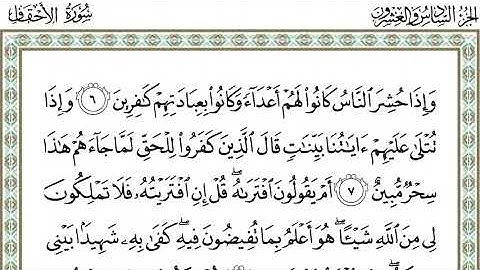 الجزء السادس والعشرون
سورة الأحقاف
وَإِذَا حُشِرَ ٱلنَّاسُ كَانُوا۟ لَهُمْ أَعْدَآءً وَكَانُوا۟ بِعِبَادَتِهِمْ كَـٰفِرِينَ ٦ وَإِذَا
تُتْلَىٰ عَلَيْهِمْ ءَايَـٰتُنَا بَيِّنَـٰتٍ قَالَ ٱلَّذِينَ كَفَرُوا۟ لِلْحَقِّ لَمَّا جَآءَهُمْ هَـٰذَا
سِحْرٌ مُّبِينٌ ٧ أَمْ يَقُولُونَ ٱفْتَرَىٰهُ ۖ قُلْ إِنِ ٱفْتَرَيْتُهُۥ فَلَا تَمْلِكُونَ
لِى مِنَ ٱللَّهِ شَيْـًٔا ۖ هُوَ أَعْلَمُ بِمَا تُفِيضُونَ فِيهِ ۖ كَفَىٰ بِهِۦ شَهِيدًۢا بَيْنِى